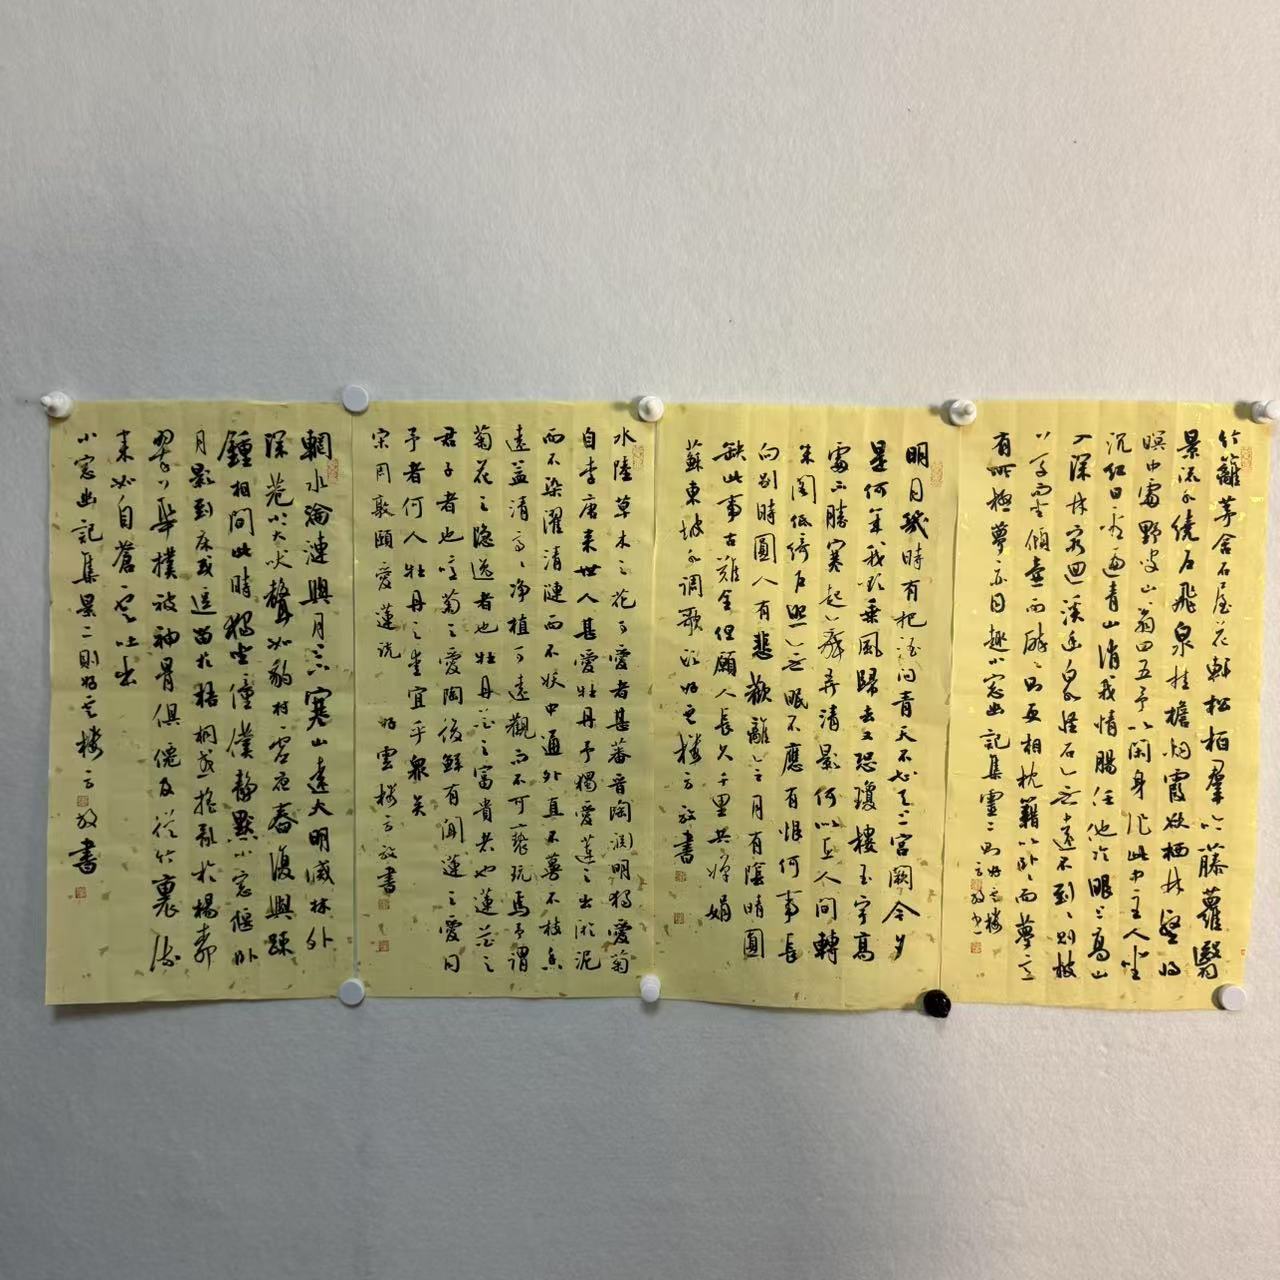 竹籬茅舍石屋花軒松柏羣吟藤蘿翳
景流水繞戶飛泉挂檐烟霞欲栖林壑將
暝中處野叟山翁四五予以閑身作此中主人坐
沉紅日看遍青山消我情腸任他冷眼上高山
入深林窮迴溪幽泉怪石無遠不到到則披
草而坐傾壺而醉醉則更相枕藉以卧卧而夢意
有所極夢亦同趣小窓幽記集靈二則好雲樓
方放書
明月幾時有把酒問青天不知天上宮闕今夕
是何年我欲乘風歸去又恐瓊樓玉宇高
處不勝寒起舞弄清影何似在人間轉
朱閣低綺戶照無眠不應有恨何事長
向別時圓人有悲歡離合月有陰晴圓
缺此事古難全但願人長久千里共嬋娟
蘇東坡水調歌頭好雲樓方放書
水陸草木之花可愛者甚蕃晉陶淵明獨愛菊
自李唐來世人甚愛牡丹予獨愛蓮之出淤泥
而不染濯清漣而不妖中通外直不蔓不枝香
遠益清亭亭净植可遠觀而不可褻玩焉予謂
菊花之隐逸者也牡丹花之富貴者也蓮花之
君子者也噫菊之愛陶後鮮有聞蓮之愛同
予者何人牡丹之愛宜乎衆矣
宋周敦頤愛蓮説 好雲樓方放書
輞水淪漣與月上下寒山遠火明滅林外
深巷小犬吠聲如豹村虛夜舂復與疎
鍾相間此時獨坐僮僕靜默小窓偃卧
月影到床或逗留於梧桐或摇亂於楊柳
翠華撲被神骨俱僊及從竹裏流
來如自蒼雲吐出
小窓幽記集景二則好雲樓方放書